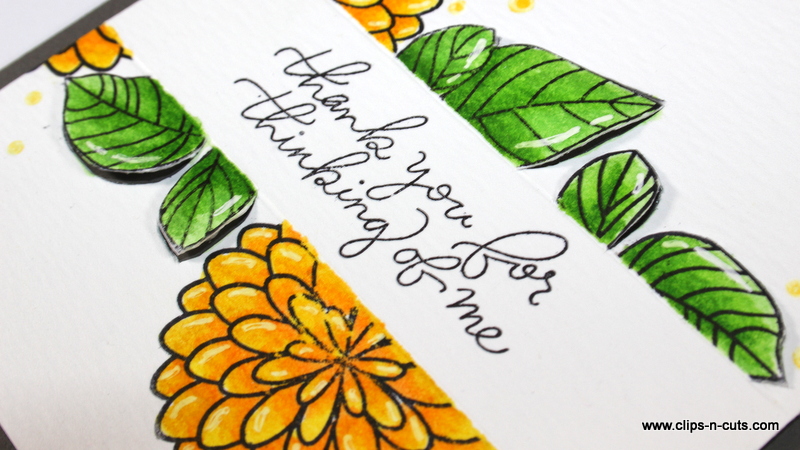 thank you for
thinking of me
www.clips-n-cuts.com